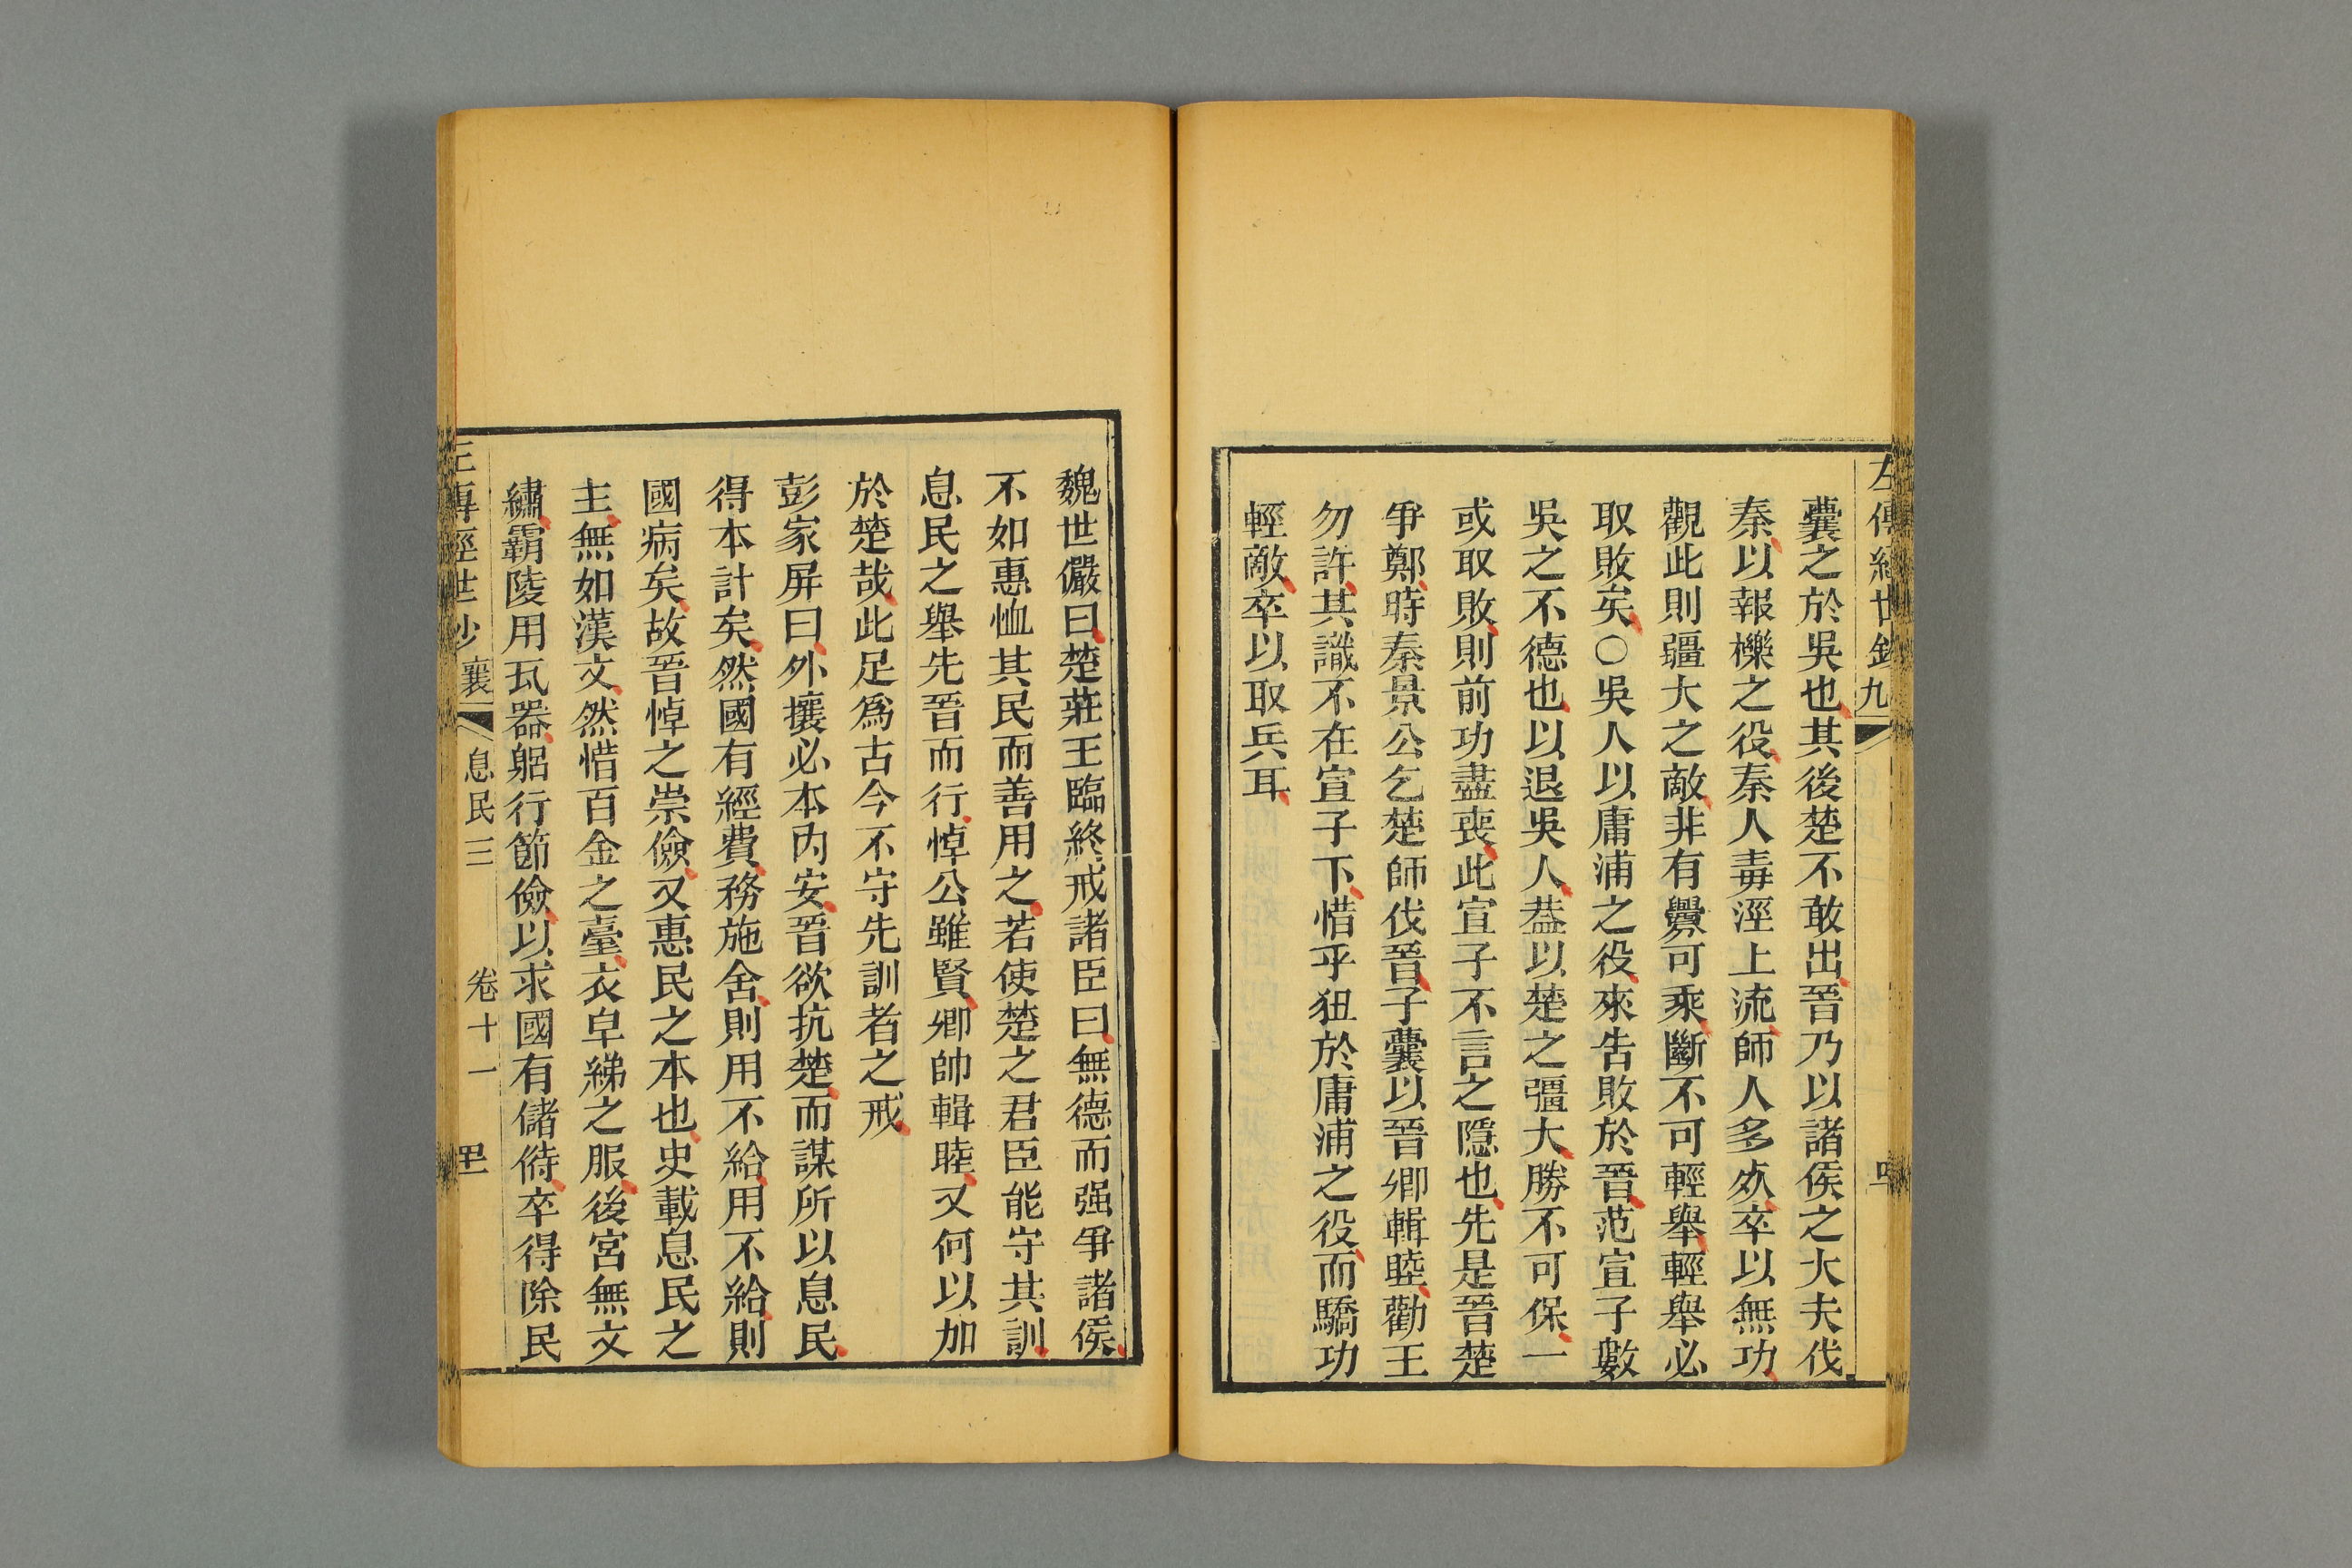 囊之於吳也其後楚不敢出晉乃以諸侯之大夫伐
秦以報櫟之役秦人毒涇上流師人多死卒以無功
觀此則疆大之敵非有釁可乘斷不可輕舉輕舉必
取敗矣○吳人以庸浦之役來告敗於晉范宣子數
吳之不德也以退吳人葢以楚之彊大勝不可保一
或取敗則前功盡喪此宣子不言之隱也先是晉楚
爭鄭時秦景公乞楚師伐晉子囊以晉卿輯睦勸王
勿許其識不在宣子下惜乎狃於庸浦之役而驕功
輕敵卒以取兵耳
魏世儼曰楚莊王臨終戒諸臣曰無德而强爭諸侯
不如惠恤其民而善用之若使楚之君臣能守其訓
息民之舉先晉而行悼公雖賢卿帥輯睦又何以加
於楚哉此足爲古今不守先訓者之戒
彭家屏曰外攘必本內安晉欲抗楚而謀所以息民
得本計矣然國有經費務施舍則用不給用不給則
國病矣故晉悼之崇儉又惠民之本也史載息民之
主無如漢文然惜百金之臺衣皁綈之服後宮無文
繡霸陵用瓦器躬行節儉以求國有儲偫卒得除民
左傳經世鈔 襄 息民三 卷十一